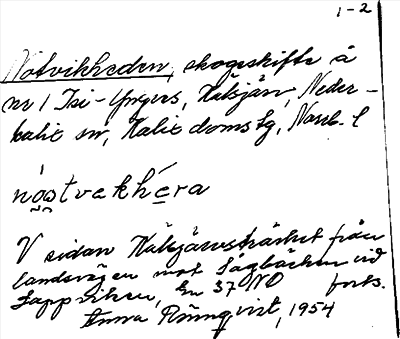 1-2
Notvikheden, skogsskifte å
nr 1 Isi-Yngers, Kälsjärv, Neder-
kalix sn, Kalix doms lg, Norrb. l
nóo̯stvekhéra
V sidan Kälsjärvsträsket från
landsvägen mot Sågbäcken vid
Lappviken, Ek 37 NO forts.
Anna Rönnqvist, 1954